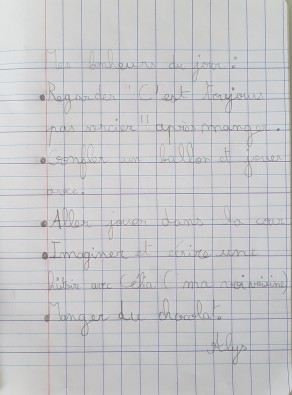 Mes bonheurs du jour :
• Regarder "C'est toujours
pas sorcier" après manger.
• Gonfler un ballon et jouer
avec.
• Aller jouer dans la cour
• Imaginer et écrire une
histoire avec Célia (ma voisine)
• Manger du chocolat.
Alys